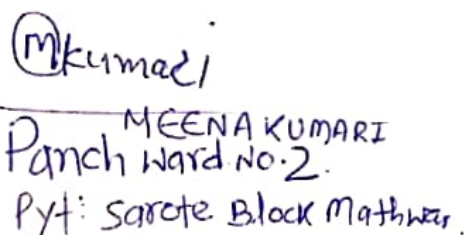 Mkumari
MEENA KUMARI
Panch Ward No. 2.
Pyt: Sarote Block Mathwar